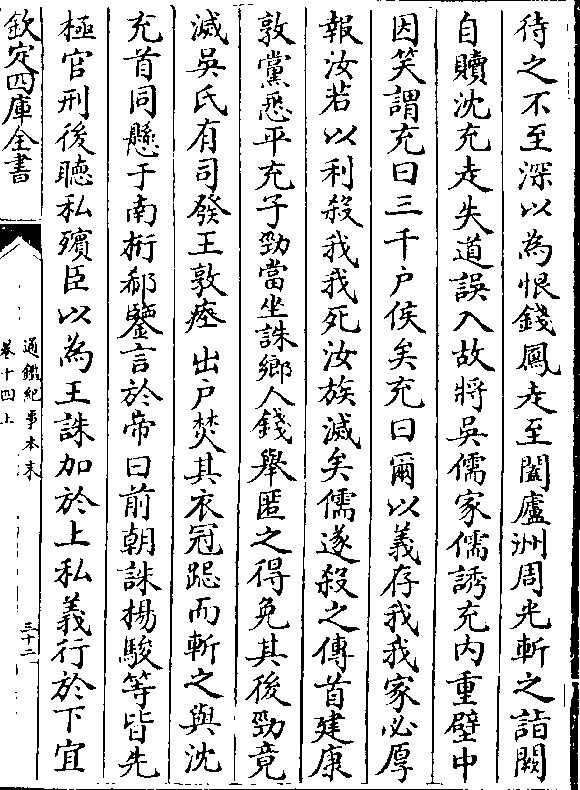 待之不至深以為恨錢鳳走至闔廬洲周光斬之詣闕
自贖沈充走失道誤入故將吳儒家儒誘充内重壁中
因笑謂充曰三千户侯矣充曰爾以義存我我家必厚
報汝若以利殺我我死汝族滅矣儒遂殺之傳首建康
敦黨悉平充子勁當坐誅鄉人錢舉匿之得免其後勁竟
滅吳氏有司發王敦瘞出户焚其衣冠跽而斬之與沈
充首同懸于南桁郗鑒言於帝曰前朝誅楊駿等皆先
極官刑後聽私殯臣以為王誅加於上私義行於下宜
欽定四庫全書
通鑑紀事本末
卷十四上
三十二